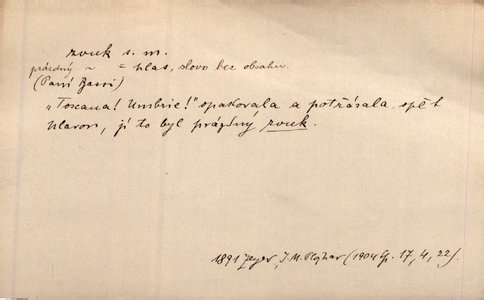 zvuk s. m.
prázdný ~ = hlas, slovo bez obsahu.
„Toscana! Umbrie!" opakovala a potřásala opět
hlavou, jí to byl prázdný zvuk.
1891 Zeyer, J. M. Plojhar (1904 Sp. 17, 4, 22).